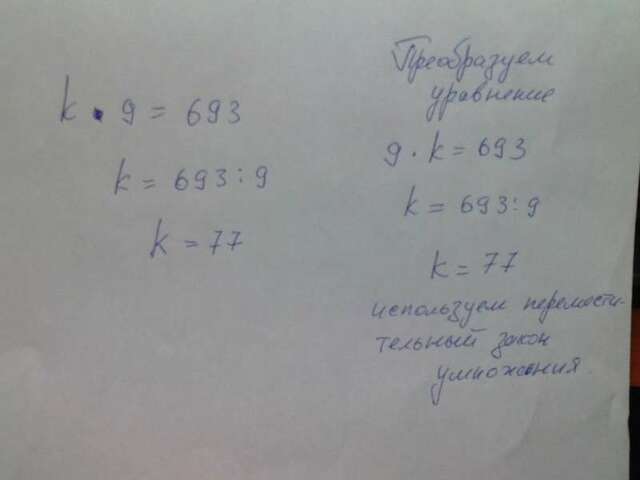 k · 9 = 693
k = 693 : 9
k = 77
Преобразуем
уравнение
9 · k = 693
k = 693 : 9
k = 77
используем перемести-
тельный закон
умножения.